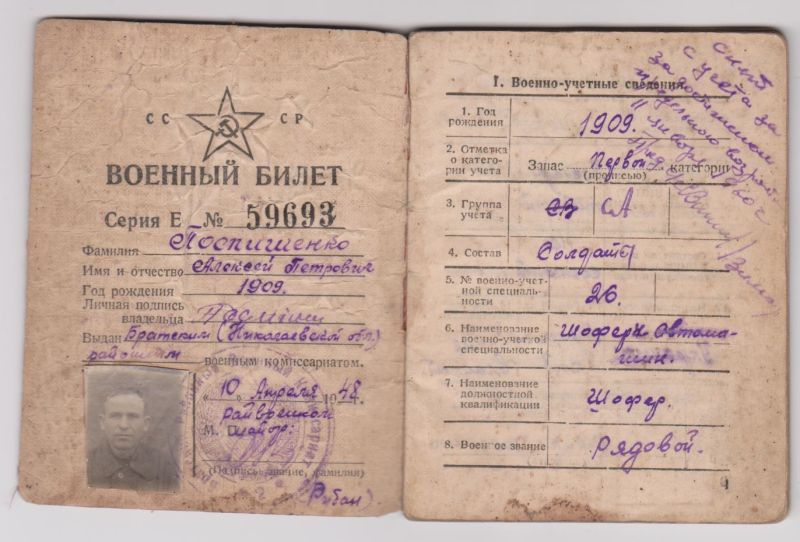 СС СР
ВОЕННЫЙ БИЛЕТ
Серия Е № 59693
Фамилия Поспишенко
Имя и отчество Алексей Петрович
Год рождения 1909.
Личная подпись
владельца
Выдан Братским (Николаевской обл.)
районным военным комиссариатом.
„ 10 „ Апреля 1948 г.
райвоенком
М. П. майор:
(Подпись, звание, фамилия)
(Рубан).
снят
с учета за
I. Военно-учетные сведения
1. Год
рождения
1909.
2. Отметка
о катего-
рии учета
Запас Первой категории
(прописью)
3. Группа
учета
СВ СА
4. Состав
Солдаты
5. № военно-учет-
ной специаль-
ности
26.
6. Наименование
военно-учетной
специальности
Шофера Автома-
шин.
7. Наименование
должностной
квалификации
Шофер.
8. Военное звание
рядовой.